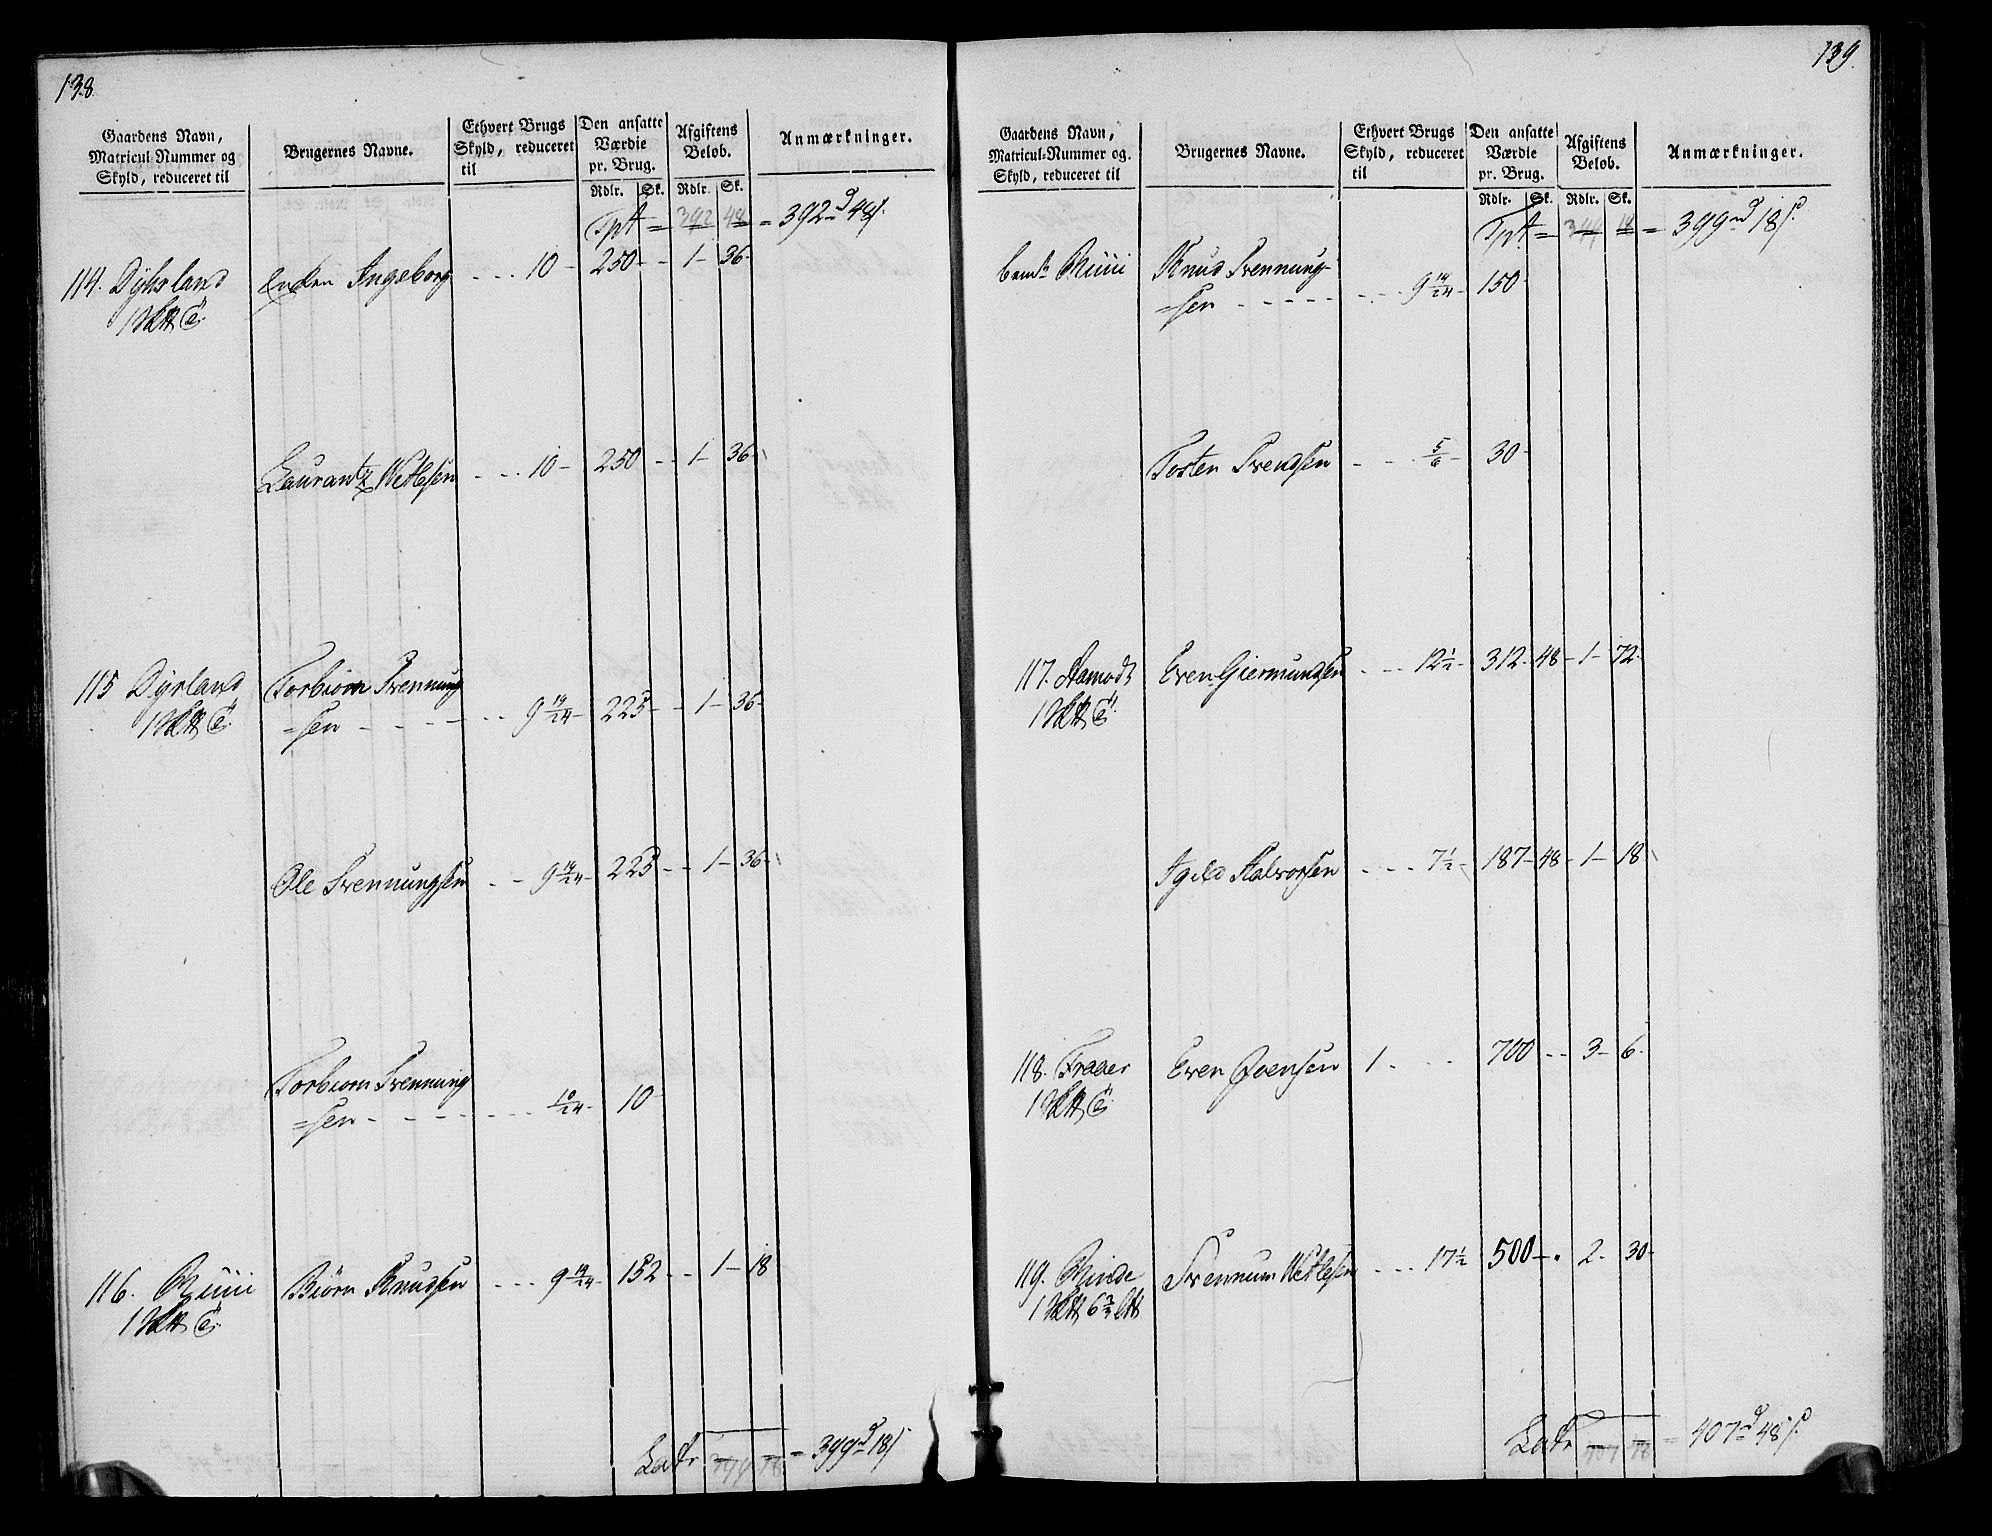 138.
Gaardens Navn,
Matricul-Nummer og
Skyld, reduceret til
Brugernes Navne.
Ethvert Brugs
Skyld, reduceret
til
Den ansatte
Værdie
pr. Brug.
Rdlr. Sk.
Afgiftens
Beløb.
Rdlr. Sk.
Anmærkninger.
Tpt = 392 48 = 392 d 48 s.
114. Dyhsland Enken Ingeborg - - - 10 - 250 - - 1 - 36 -
1
Laurantz Wetlesen - - - 10 - 250 - - 1 - 36 -
115 Dyrland Torbiørn Svennung
1
=sen - - - - - - 9 14/24 - 225 - - 1 - 36 -
Ole Svennungsen - - 9 14/24 - 225 - - 1 - 36 -
Torbiørn Svennung
=sen - - - - - - - 10/24 - 10 -
116. Biørn Knudsen - - - 9 14/24 - 152 - - 1 - 18
1
Latr 399 18 = 399 d 18 s
139.
Gaardens Navn,
Matricul-Nummer og.
Skyld, reduceret til
Brugernes Navne.
Ethvert Brugs
Skyld, reduceret
til
Den ansatte
Værdie
pr. Brug.
Rdlr. Sk.
Afgiftens
Beløb.
Rdlr. Sk.
Anmærkninger.
Tpt = 18 = 399 d 18 s.
Knud Svennung-
=sen - - - - - - - 9 14/24 - 150 -
Tosten Svendsen - - - 5/6 - 30 -
117. Aamodt Even Giermundsen - - - 12 1/2 - 312 - 48 - 1 - 72 -
1
Halvorsen - - - 7 1/2 - 187 - 48 - 1 - 18
118. Fraaer Even Øvensen 1 - - - 700 - - 3 - 6 -
1
119. Rinde Svennum Wetlesen - - - 17 1/2 500 - - 2 - 30 -
1
Latr = 407 d 48 s.